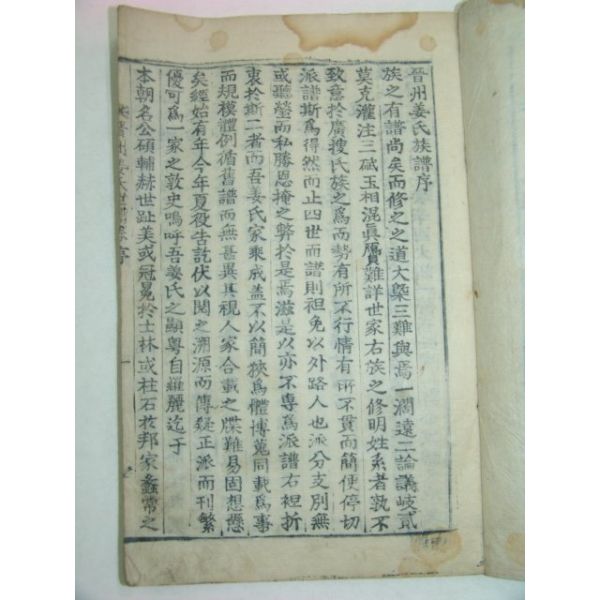 晉州姜氏族譜序
族之有譜尚矣而修之之道大槩三難與焉一濶遠二論議岐貳
莫克灌注三碔玉相混眞贋難詳世家右族之修明姓系者孰不
致意於廣搜氏族之爲而勢有所不行情有所不貫而簡便停切
派譜斯爲得然而止四世而譜則袒免以外路人也派分支別無
或聽瑩而私勝恩掩之弊於是焉滋是以亦不專爲派譜右裎折
衷於斯二者而吾姜氏家乘成盖不以簡狹爲體博蒐同載爲事
而規模體例循舊譜而無甚異其視人家合載之牒難易固想懸
矣經始有年今年夏役告訖伏以閱之溯源而傳疑正派而刊繁
優可爲一家之敦史嗚呼吾姜氏之顯粤自羅麗迄于
本朝名公碩輔赫世趾美或冠冕於士林或柱石於邦家彝常之
晋州姜氏世譜序
一